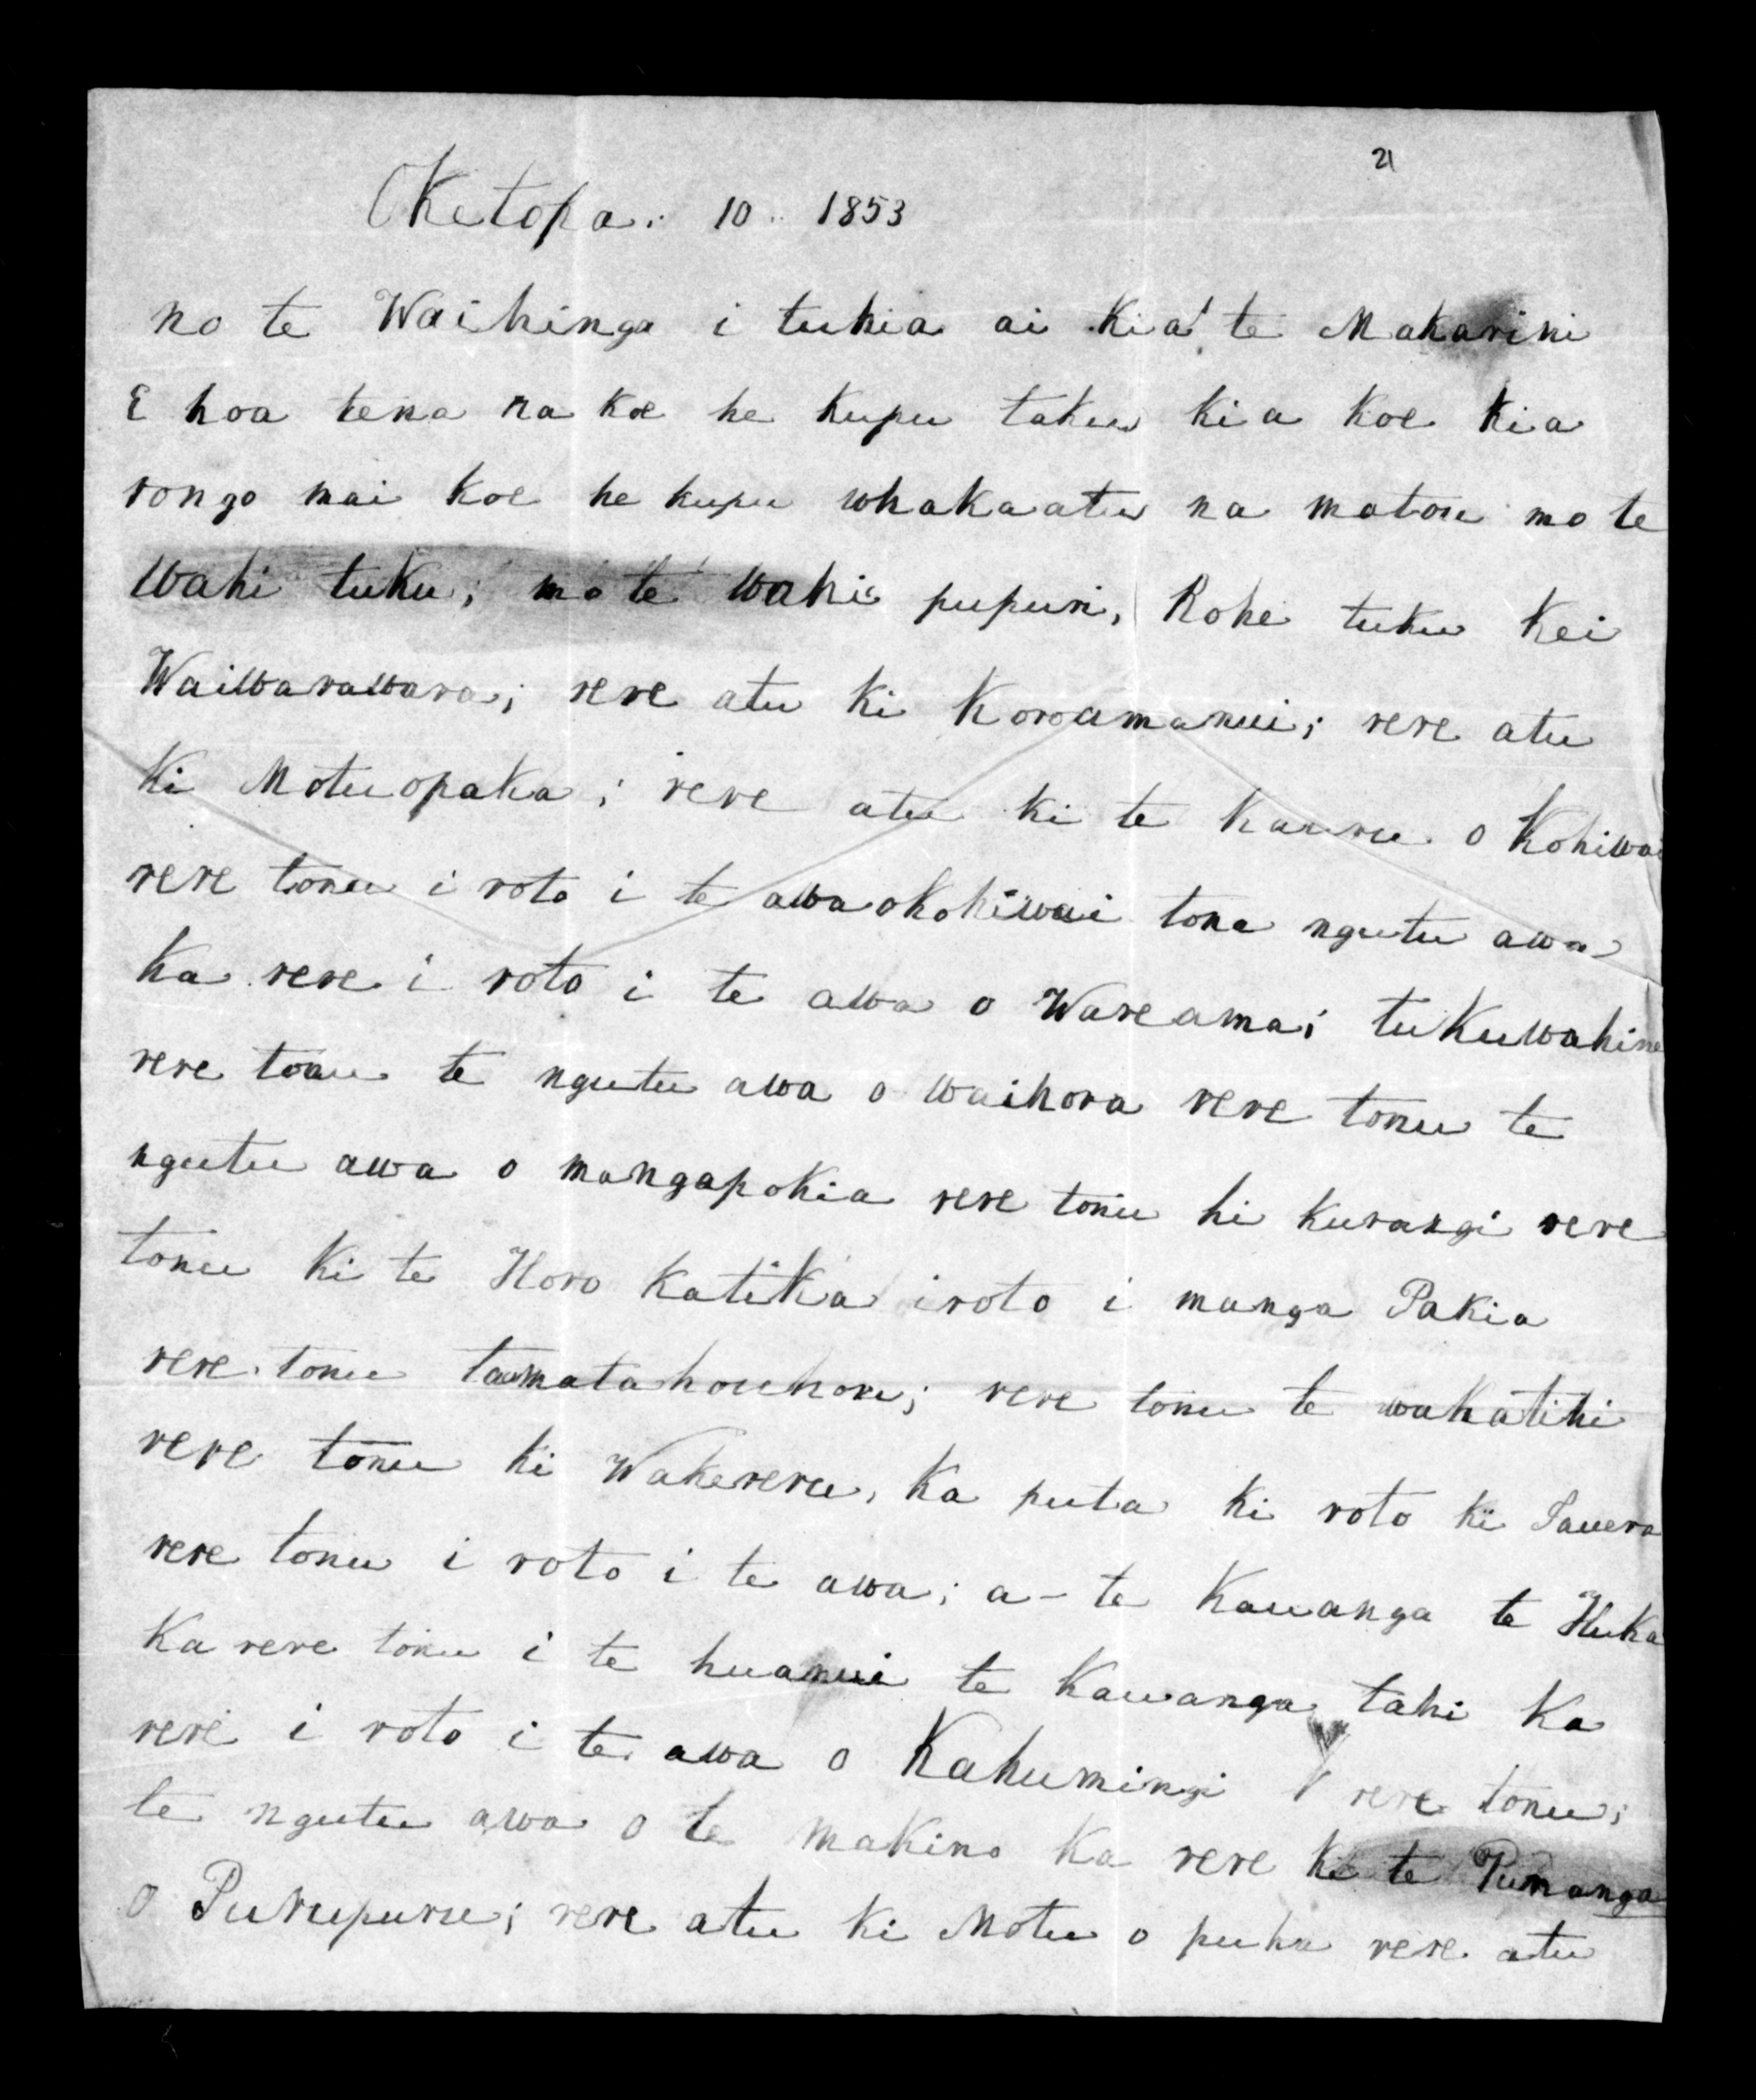 21
Oketopa: 10 .. 1853
no te Waihinga i tuhia ai kia te Makarini
E hoa tena ra koe he kupu taku kia koe kia
rongo mai koe he kupu whakaatu na matou mo te
wahi tuku; mo te wahi pupuri, Rohe tuku kei
Waiwarawara; rere atu ki Koroamanui; rere atu
ki Motuopaka; rere atu ki te kauru o Kohiwai
rere tonu i roto i te awaokohiwai tona ngutu awa
ka rere i roto i te awa o Wareama; tukuwahine
rere tonu te ngutu awa o waihora rere tonu te
ngutu awa o mangapokia rere tonu ki kurangi rere
tonu ki te Horo katika iroto i manga Pakia
rere tonu taumatahouhou; rere tonu te wakatiki
rere tonu ki Wakereru, ka puta ki roto ki Tauera
rere tonu i roto i te awa; a - te Kauanga te Huka
Ka rere tonu i te huanui te Kauanga tahi ka
rere i roto i te awa o Kahumingi rere tonu;
te ngutu awa o te makino ka rere ki te Pumanga
o Purupuru; rere atu ki Motu o puha rere atu